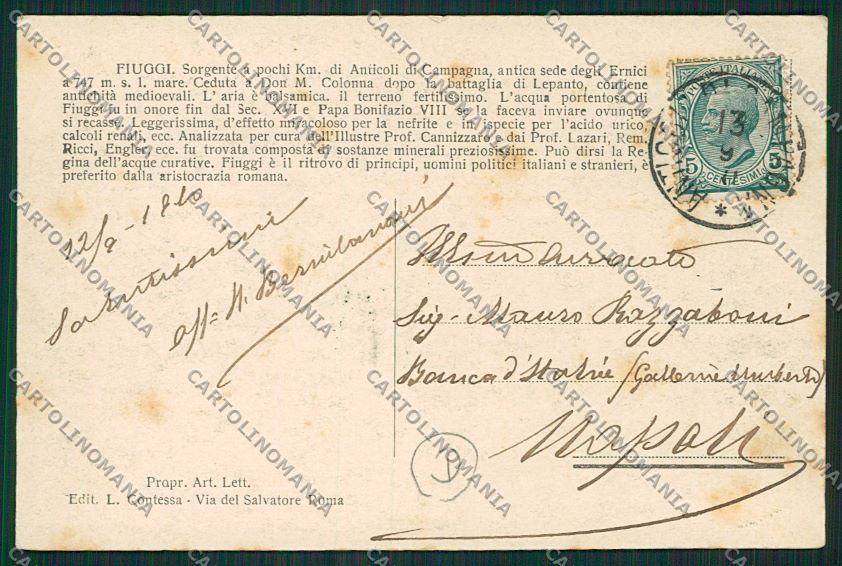 FIUGGI. Sorgente a pochi Km. di Anticoli di Campagna, antica sede degli Ernici
a 747 m. s. l. mare. Ceduta a Don M. Colonna dopo la battaglia di Lepanto, contiene
antichità medioevali. L'aria è balsamica. il terreno fertilissimo. L'acqua portentosa di
Fiuggi fu in onore fin dal Sec. XIII e Papa Bonifazio VIII se la faceva inviare ovunque
si recasse. Leggerissima, d'effetto miracoloso per la nefrite e in ispecie per l'acido urico,
calcoli renali, ecc. Analizzata per cura dell'Illustre Prof. Cannizzaro e dai Prof. Lazari, Rem.
Ricci, Engler, ece. fu trovata composta di sostanze minerali preziosissime. Può dirsi la Re-
gina dell'acque curative. Fiuggi è il ritrovo di principi, uomini politici italiani e stranieri, è
preferito dalla aristocrazia romana.
POSTE ITALIANE
5 CENTESIMI 5
13
9
Salutissimi
Sig. Mauro Razzaboni
Banca d'Italia (Galleria Umberto)
Napoli
Propr. Art. Lett.
Edit. L. Contessa - Via del Salvatore Roma
CARTOLINOMANIA